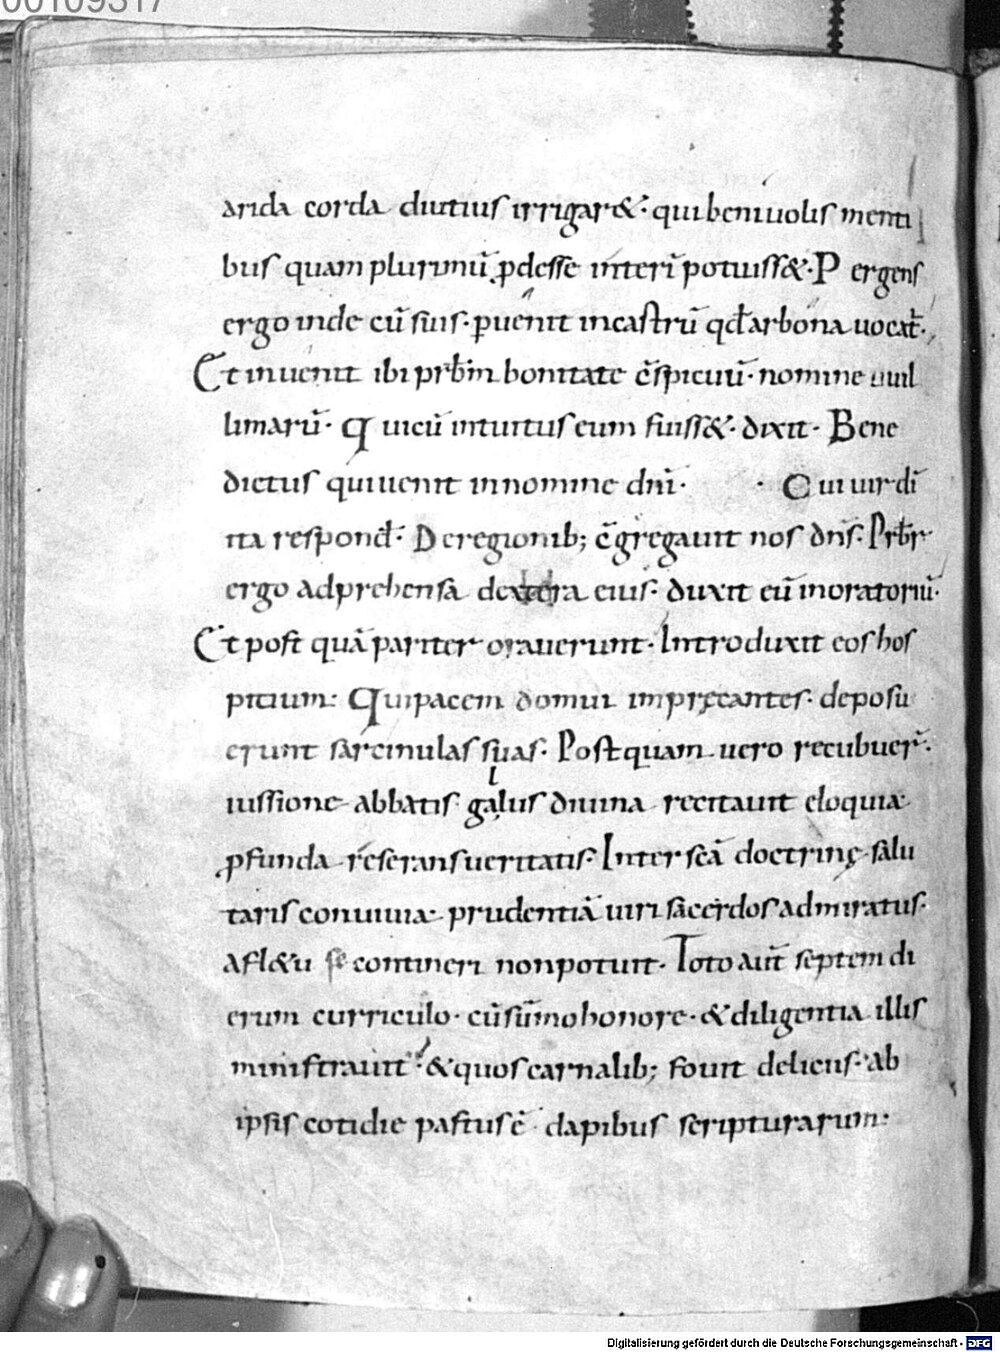 00109317
arida corda diutius irrigar&. qui beniuolis menti
bus quam plurimū ꝓdesse interī potuiss&. Pergens
ergo inde cū suis. ꝑuenit incastrū qđ arbona uocat̄.
Et inuenit ibi prb̄m bonitate c̄spicuū. nomine uuil
limarū. Qui cū intuitus eum fuiss&. dixit. Bene
dictus qui uenit innomine dn̄i. Cui uir dī
ita respond̄. Deregionib; c̄gregauit nos dn̄s. Prb̄r
ergo adprehensa dextera eius. duxit eū inoratoriū.
Et post quā pariter orauerunt. Introduxit eos hos
pitium. Qui pacem domui impręcantes. deposu
erunt sarcinulas suas. Postquam uero recubuer̄.
iussione abbatis galłus diuina recitauit eloquia
ꝓfunda reserans ueritatis. Inter scā doctrinę salu
taris conuiuia. prudentiā uiri sacerdos admiratus.
a fl&u se contineri non potuit. Toto aut̄ septem di
erum curriculo. cū sūmo honore. & diligentia illis
ministrauit. & quos carnalib; fouit deliciis. ab
ipsis cotidie pastus ē dapibus scripturarum.
Digitalisierung gefördert durch die Deutsche Forschungsgemeinschaft - DFG